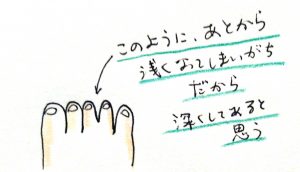 このように、あとから
浅くなってしまいがち
だから
深くしてあると
思う